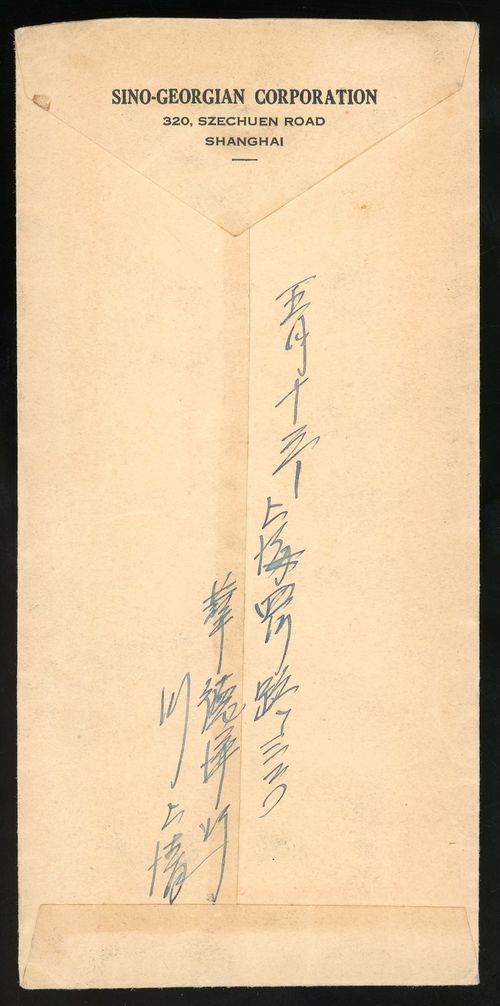 SINO-GEORGIAN CORPORATION
320, SZECHUEN ROAD
SHANGHAI
五月十三
上海四川路三二〇
華德洋行
川上清